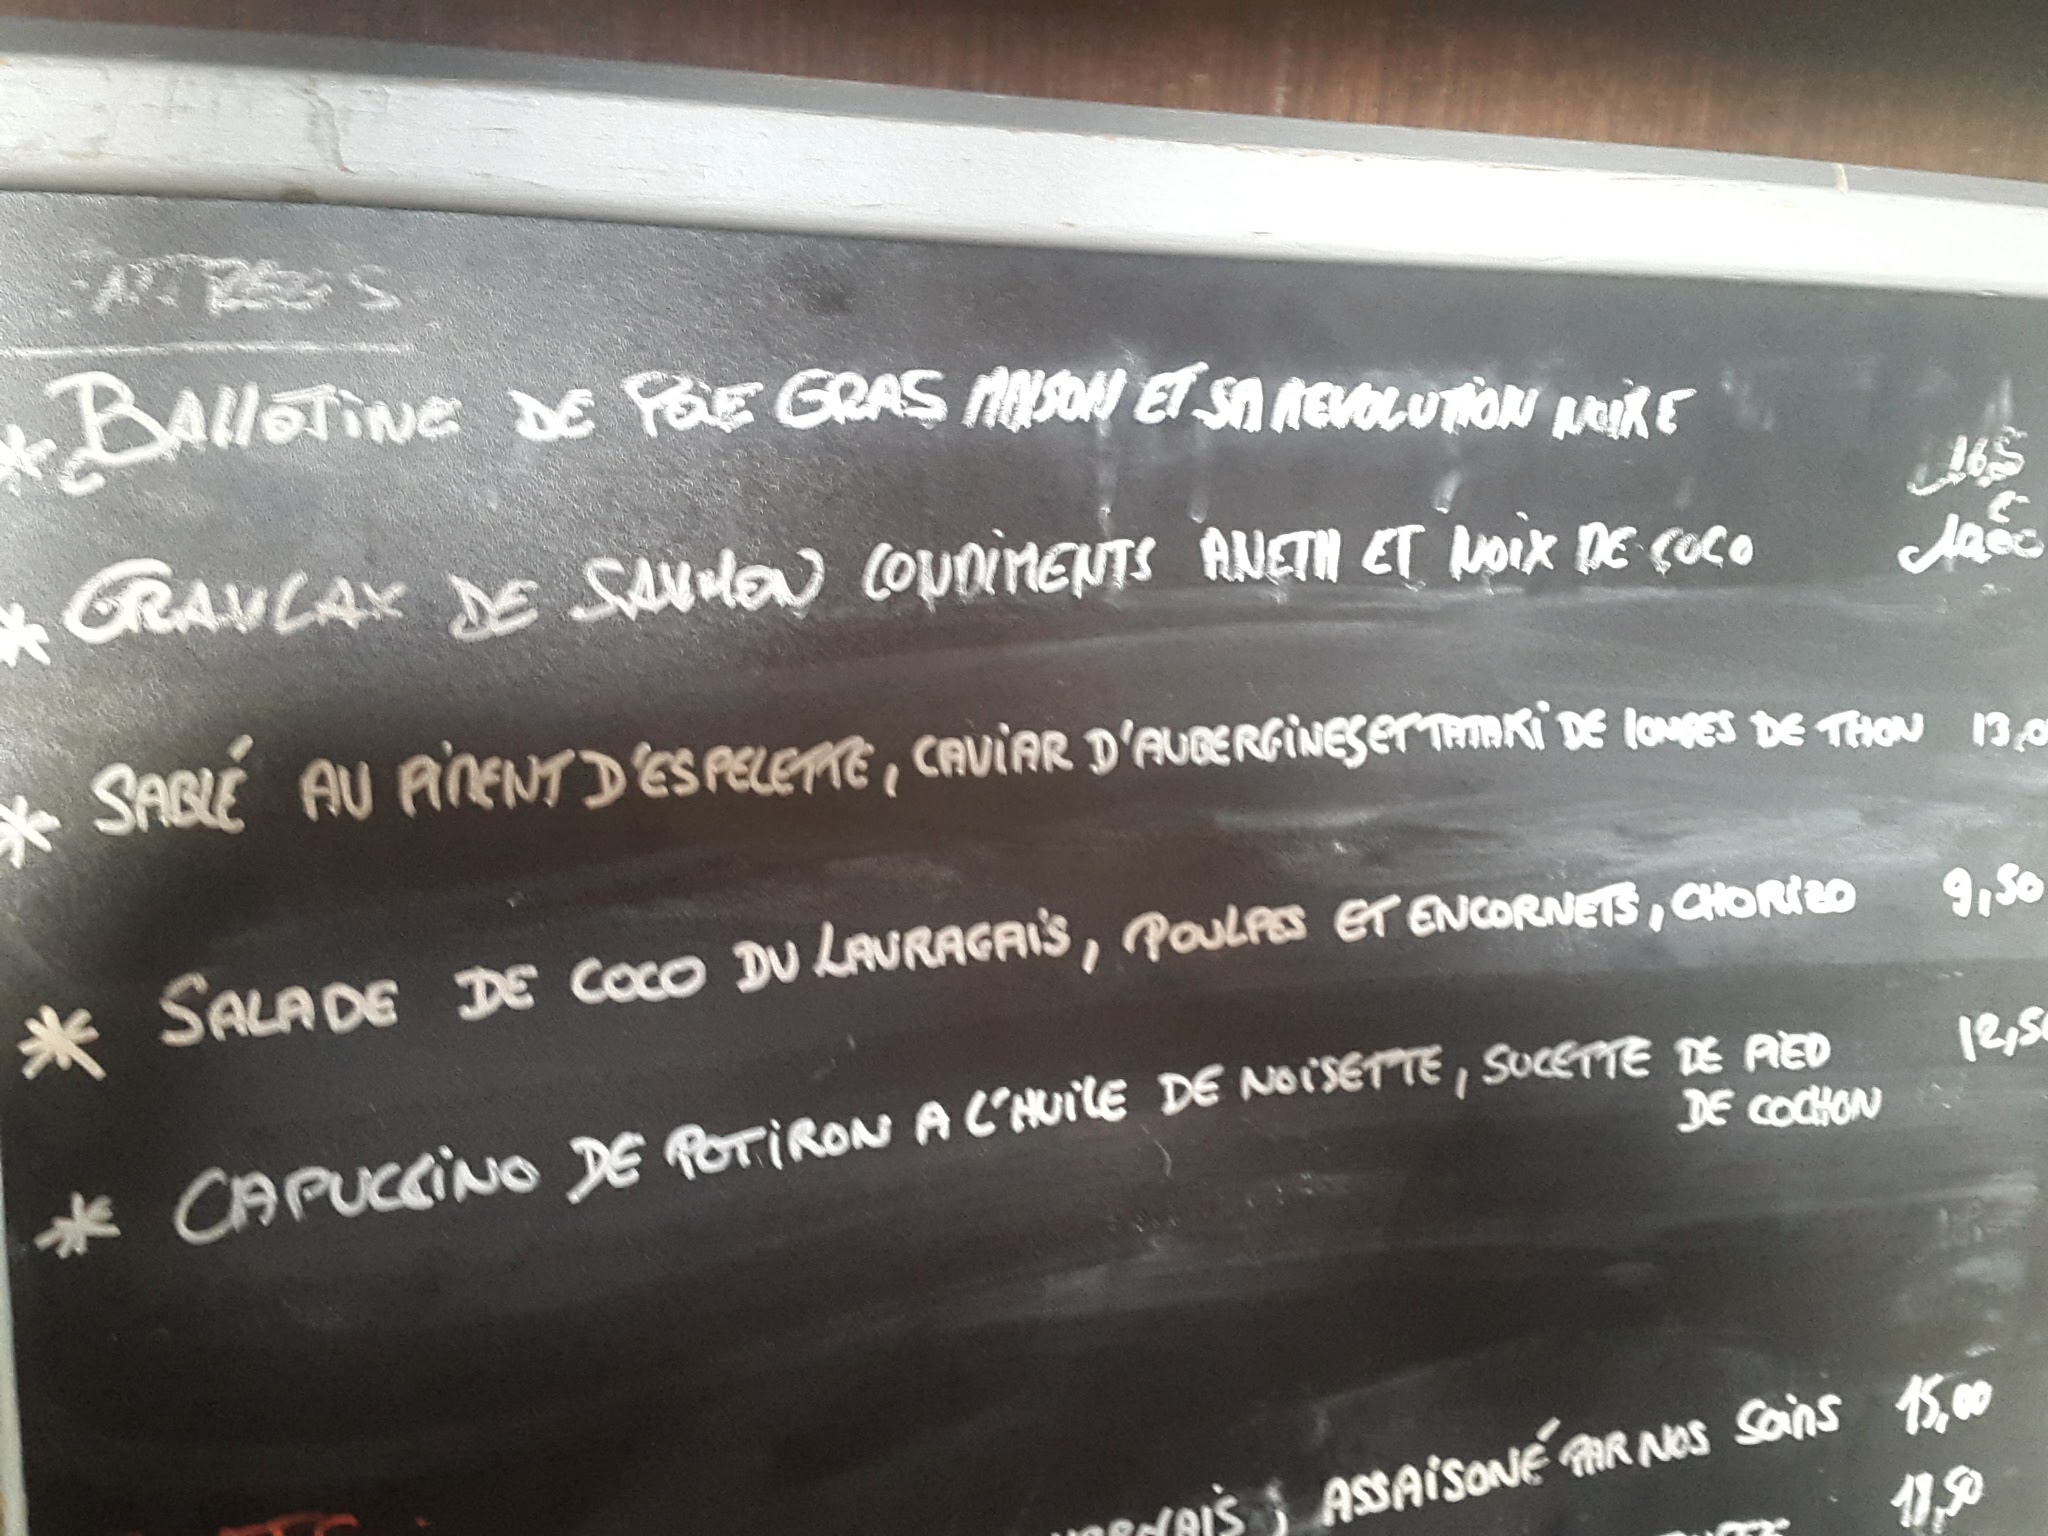 ENTREES
* BALLOTINE DE FOIE GRAS MAISON ET SA REVOLUTION NOIRE
* GRAVLAX DE SAUMON CONDIMENTS ANETH ET NOIX DE COCO
* SABLÉ AU PIMENT D'ESPELETTE, CAVIAR D'AUBERGINES ET TATAKI DE LONGES DE THON 13,0
* SALADE DE COCO DU LAURAGAIS, POULPES ET ENCORNETS, CHORIZO 9,50
* CAPUCCINO DE POTIRON A L'HUILE DE NOISETTE, SUCETTE DE PIED 12,50
DE COCHON
ASSAISONÉ PAR NOS SOINS 15,00
18,50